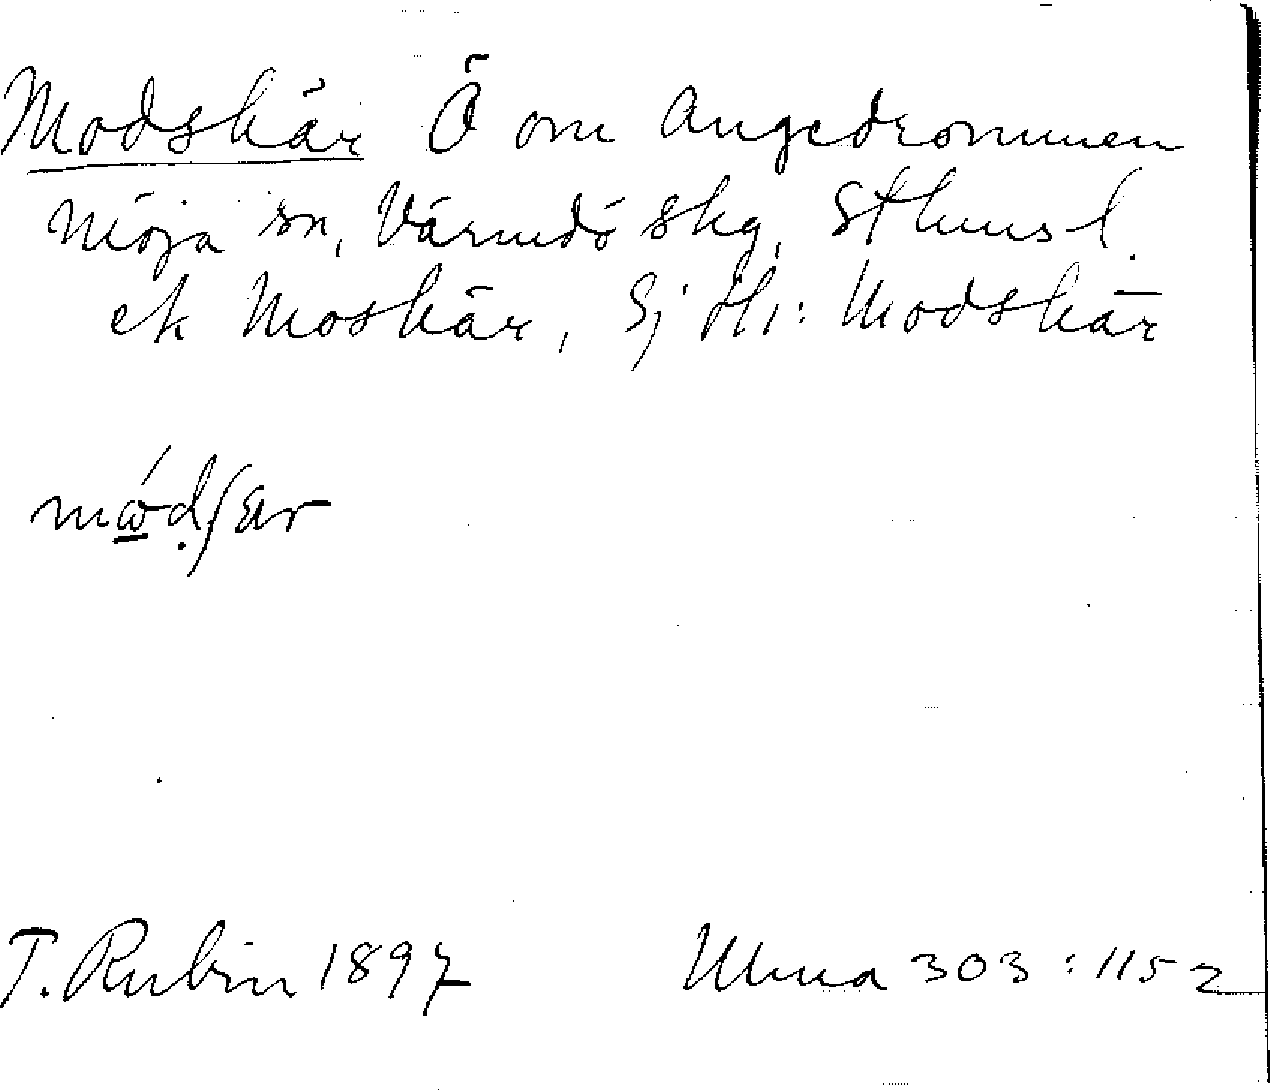 Modskär Ö om Angedrommen
Möja sn, Värmdö skg, Sthms l.
ek Moskär, Sj : Modskär
T. Rubin 1897 Ulma 303:1152